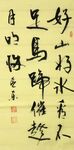 好山好水看不
足馬蹄催趁
月明歸